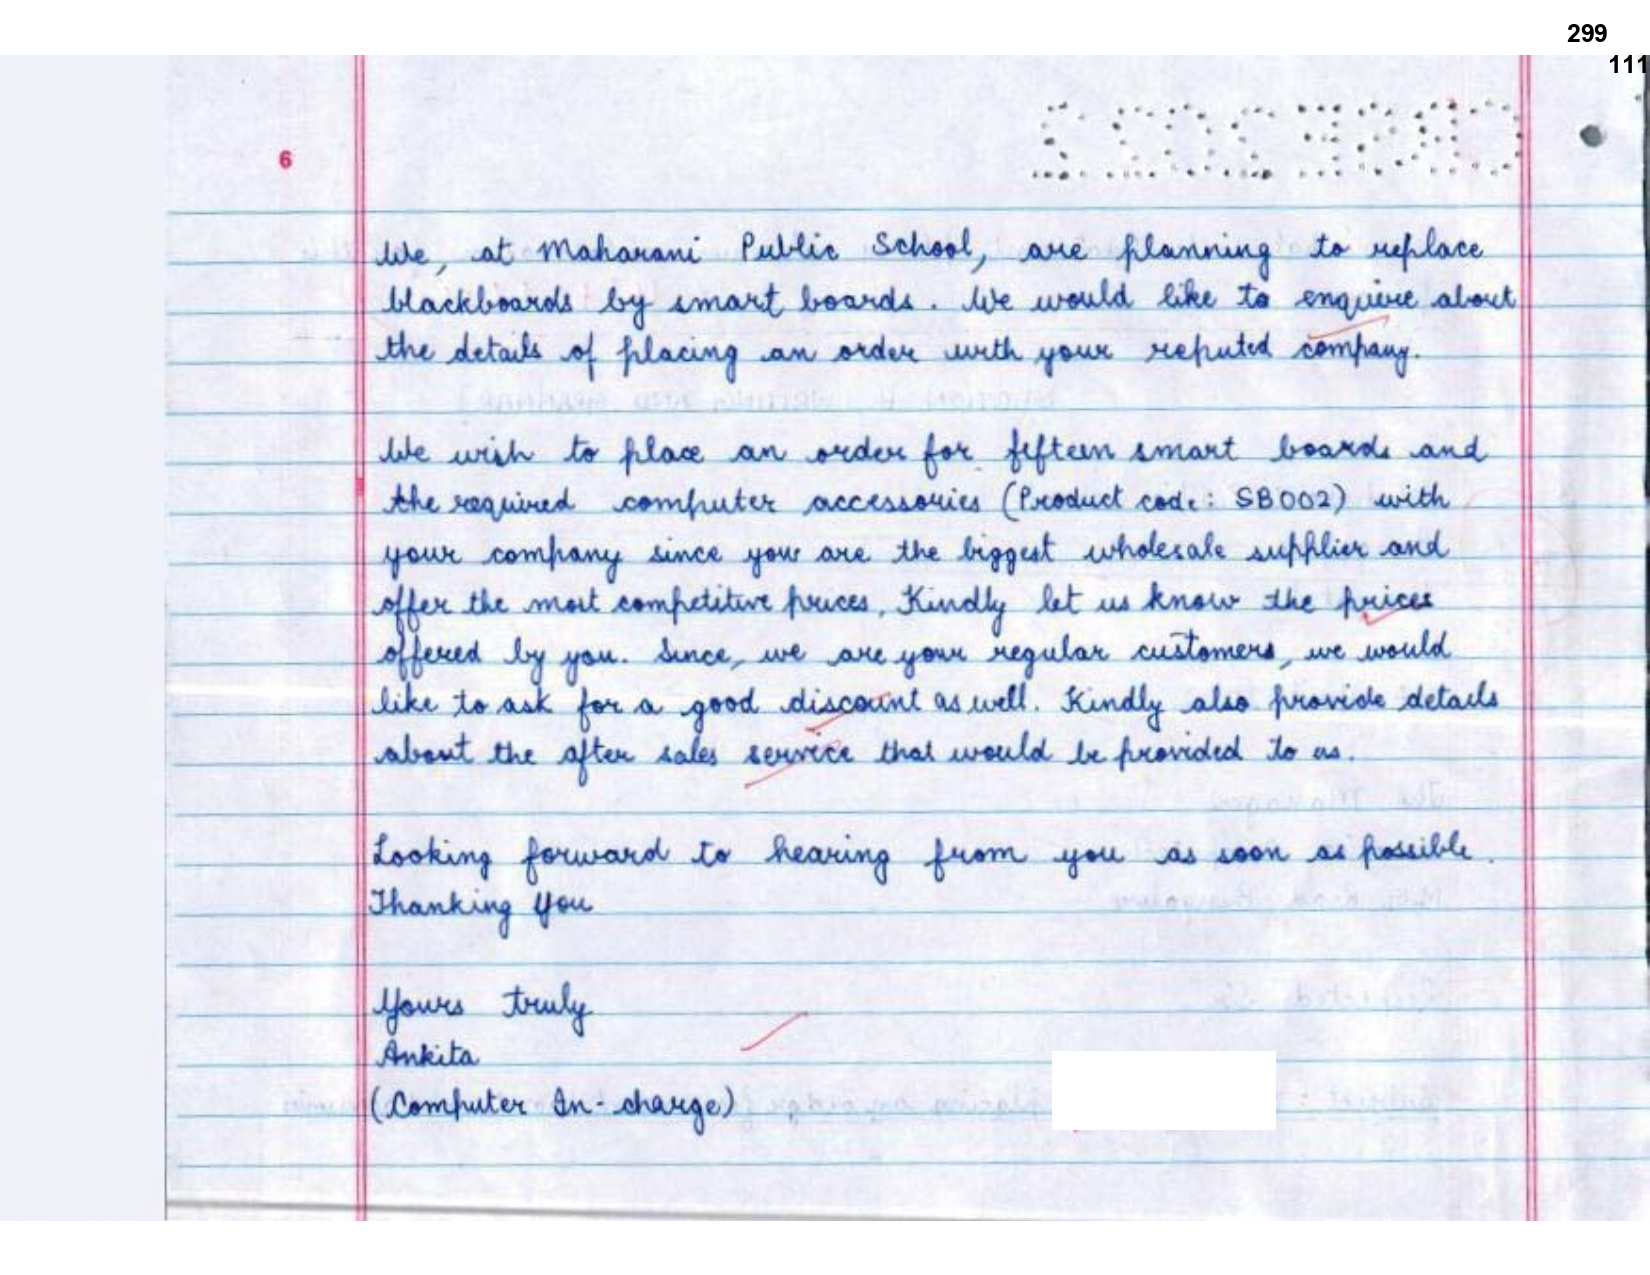 299
111
CBSE2022
6
We, at Maharani Public School, are planning to replace
blackboards by smart boards. We would like to enquire about
the details of placing an order with your reputed company.
We wish to place an order for fifteen smart boards and
the required computer accessories (Product code: SB002) with
your company since you are the biggest wholesale supplier and
offer the most competitive prices. Kindly let us know the prices
offered by you. Since, we are your regular customers, we would
like to ask for a good discount as well. Kindly also provide details
about the after sales service that would be provided to us.
Looking forward to hearing from you as soon as possible.
Thanking You
Yours truly
Ankita
(Computer In-charge)